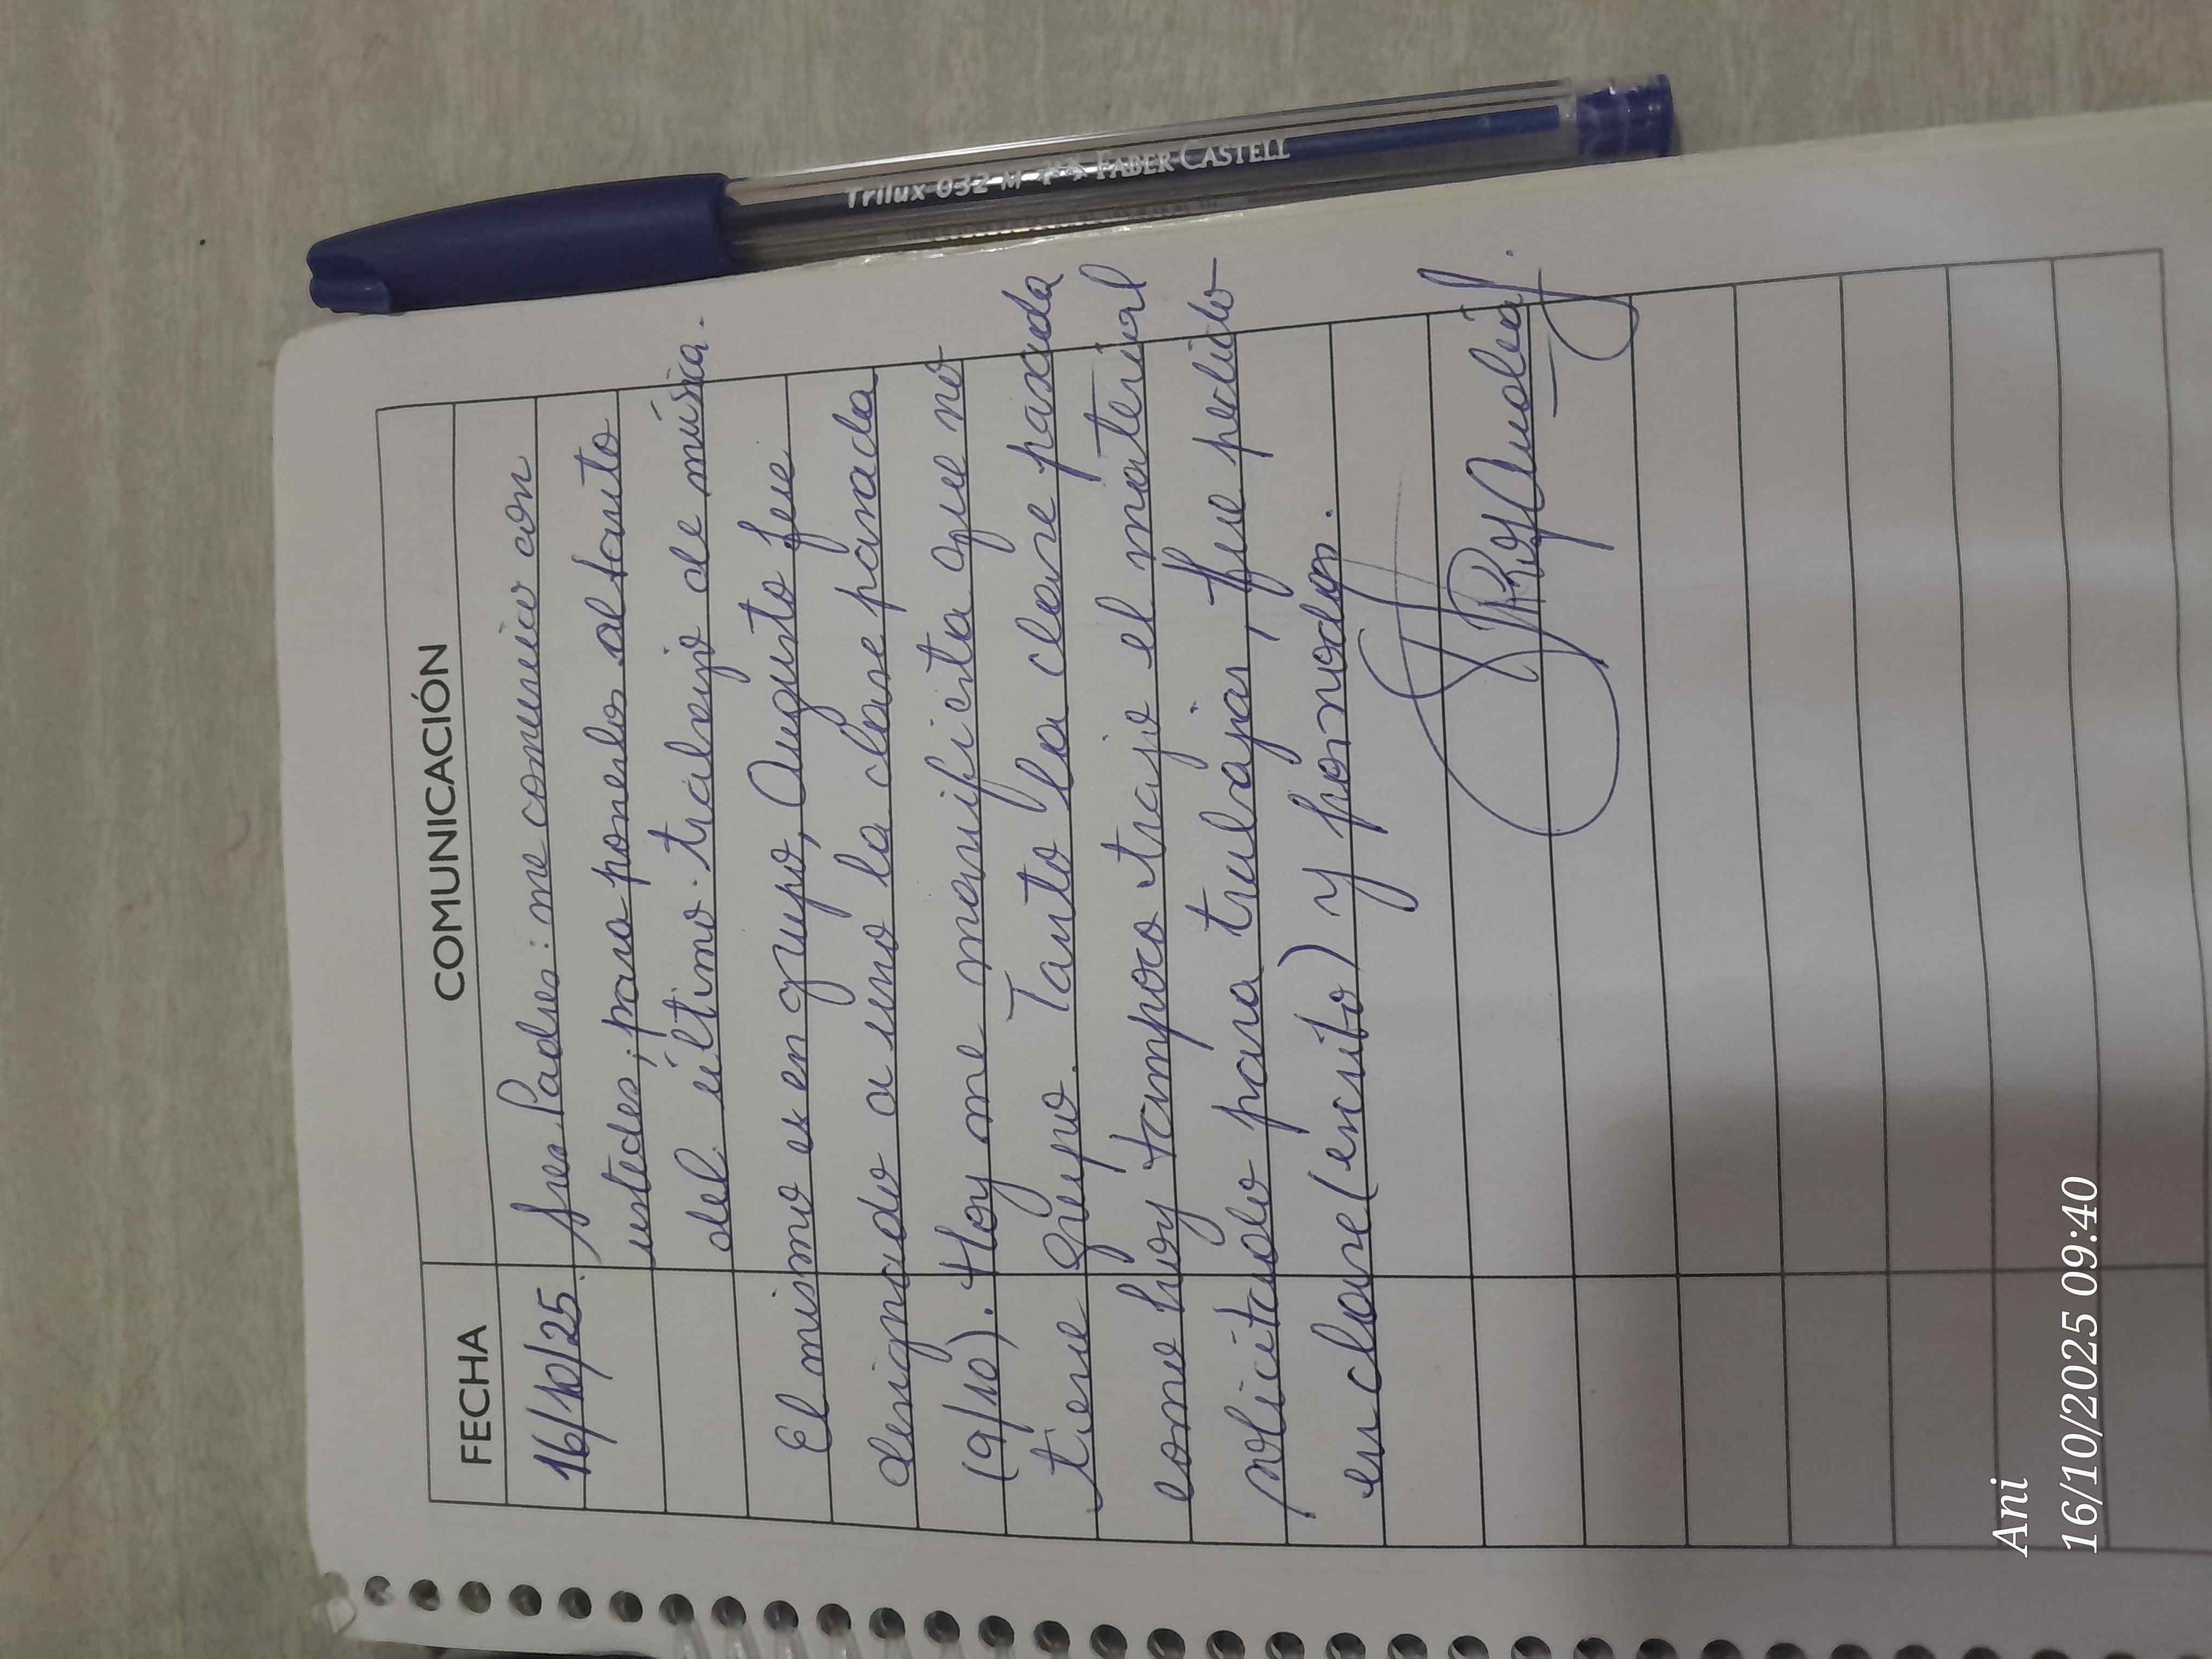 FECHA COMUNICACIÓN
16/10/25. Sres. Padres: me comunico con
ustedes, para ponerlos al tanto
del último trabajo de música.
El mismo es en grupo, Augusto fue
designado a uno la clase pasada
(9/10). Hoy me manifiesta que no
tiene grupo. Tanto la clase pasada
como hoy tampoco trajo el material
solicitado para trabajar, fue pedido
en clase (escrito) y firmados.
Trilux 032 M FABER-CASTELL
Ani
16/10/2025 09:40